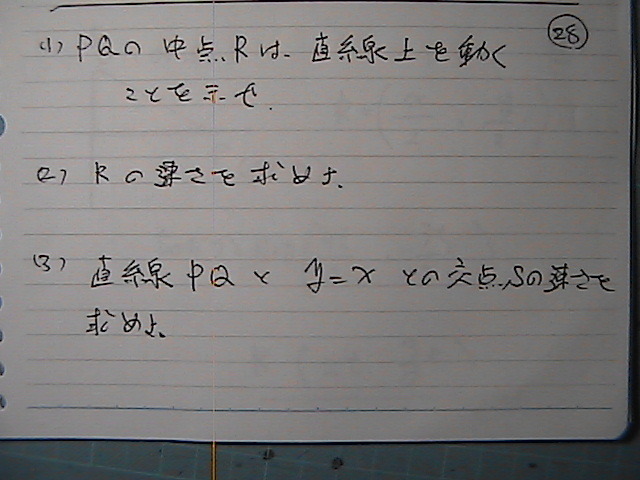 (1) PQの中点Rは、直線上を動く
㉘
ことを示せ。
(2) Rの速さを求めよ。
(3) 直線PQと y=x との交点Sの速さを
求めよ。